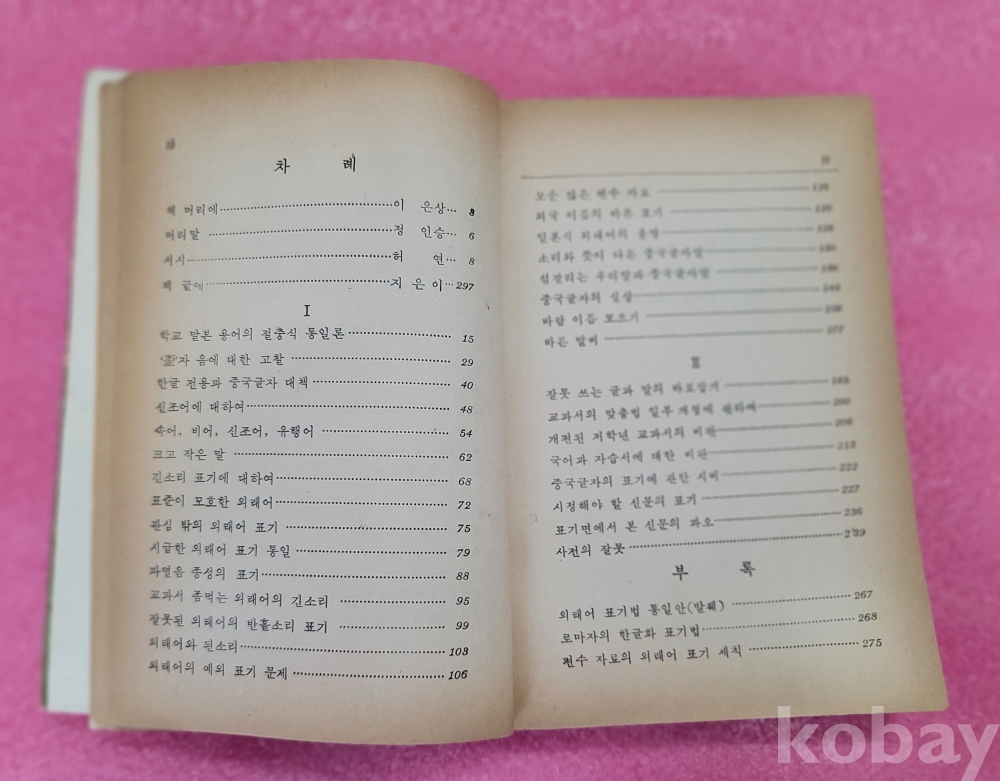 차 례
책 머리에 이 은상 3
머리말 정 인승 6
서시 허 연 8
책 끝에 지 은 이 297
I
학교 말본 용어의 절충식 통일론 15
자 음에 대한 고찰 29
한글 전용과 중국글자 대책 40
신조어에 대하여 48
속어, 비어, 신조어, 유행어 54
크고 작은 말 62
긴소리 표기에 대하여 68
표준이 모호한 외래어 72
관심 밖의 외래어 표기 75
시급한 외래어 표기 통일 79
파열음 종성의 표기 88
교과서 좀먹는 외래어의 긴소리 95
잘못된 외래어의 반홀소리 표기 99
외래어와 된소리 103
외래어의 예외 표기 문제 106
모순 많은 편수 자료
외국 이름의 바른 표기
일본식 외래어의 용명
소리와 뜻이 다른 중국글자말
섭갈리는 우리말과 중국글자말
중국글자의 실상
바람 이름 모으기
바른 말씨 177
II
잘못 쓰는 글과 말의 바로잡기
교과서의 맞춤법 일부 개정에 관하여 200
개편된 저학년 교과서의 비판 206
국어과 자습서에 대한 비판 213
중국글자의 표기에 관한 시비 222
시정해야 할 신문의 표기 227
표기면에서 본 신문의 과오 236
사전의 잘못 239
부 록
외래어 표기법 통일안(말꿰) 267
로마자의 한글화 표기법 268
편수 자료의 외래어 표기 세칙 275
kobay